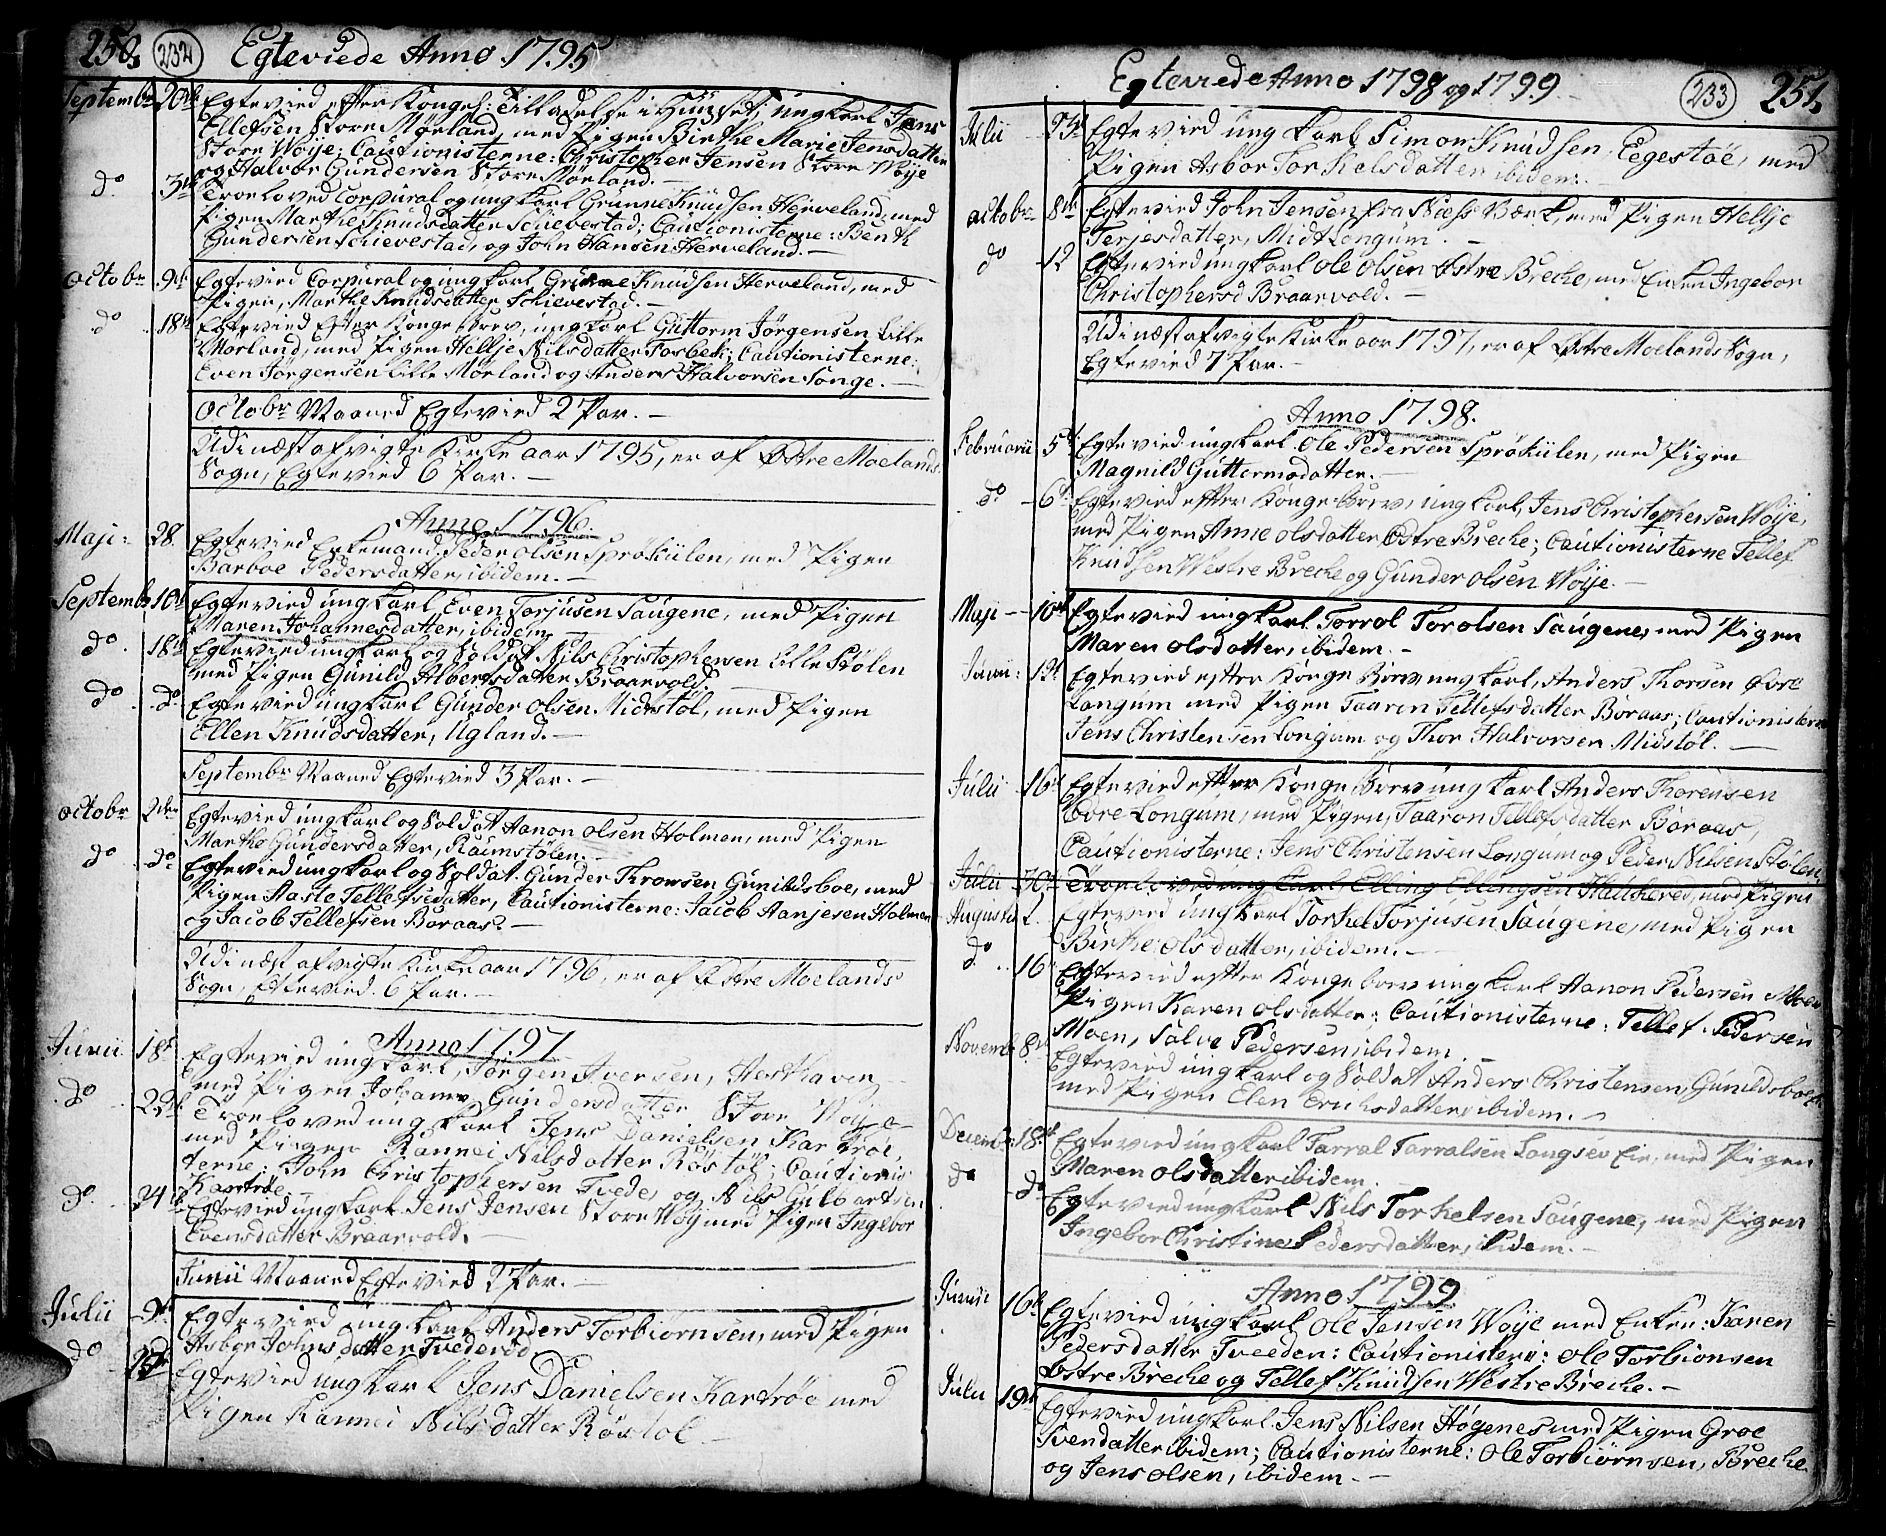 250,
232
Egteviede Anno 1795
Septembr 20de Egtevied efter Kongel: Tilladelse i Huuset, ung karl Jens
Ellefsen Store Mørland, med Pigen Birthe Marie Jensdatter
Store Woije; Cautionisterne: Christopher Jensen Store Woije
og Halvor Gundersen Store Mørland. -
do 3de Troeloved Corpural og ung karl Grunne Knudsen Herveland, med
Pigen Marthe Knudsdatter Schievestad; Cautionisterne: Benth
Gundersen Schievestad, og John Hansen Herveland. -
Octobr 9de Egtevied Corpural og ung karl, Grunne Knudsen Herveland, med
Pigen, Marthe Knudsdatter Schievestad. -
do 18de Egtevied efter Konge Brev, ung karl Guttorm Jørgensen Lille
Mørland, med Pigen Hellje Nilsdatter Fosbek; Cautionisterne:
Even Jørgensen Lille Mørland og Anders Halvorsen Songe. -
Octobr Maaned Egtevied 2 Par. -
Udi næst afvigte Kirke aar 1795, er af Østre Moelands
Sogn, Egtevied 6 Par. -
Anno 1796.
Maji: 28 Egtevied Enkemand Peder Olsen Sprøkülen, med Pigen
Barboe Pedersdatter, ibidem. -
Septembr 10de Egtevied ung karl Even Torjusen Saugene, med Pigen
Maren Johannesdatter, ibidem
do 18de Egtevied ung karl og Soldat Nils Christophersen Lille Stølen
med Pigen Gunild Albertsdatter Braarvold
do do Egtevied ung karl Gunder Olsen Midstøl, med Pigen
Ellen Knudsdatter, Ugland. -
Septembr Maaned Egtevied 3 Par. -
Octobr 2den Egtevied ung karl og Soldat Aanon Olsen Holmen, med Pigen
Marthe Gundersdatter, Raamstølen. -
do do Egtevied ung karl og Soldat: Gunder Thronsen Gunildsboe, med
Pigen Aaste Tellefsdatter, Cautionisterne: Jacob Aanjesen Holmen
og Jacob Tellefsen Boraas. -
Udi næst afvigte Kirke aar 1796, er af Østre Moelands
Sogn, Egtevied 6 Par. -
Anno 1797
Junii 18de Egtevied ung karl, Jørgen Iversen, Hesthaven
med Pigen Johanne Gundersdatter Store Woije
do 22de Troeloved ung karl Jens Danielsen Kartrøe,
med Pigen Rannei Nilsdatter Røstøl; Cautionis
terne: John Christophersen Tvede, og Nils Gulbrantsen
Kartrøe
do 24de Egtevied ung karl Jens Jensen Store Woij med Pigen Ingebor
Evensdatter Braarvold.
Junii Maaned Egtevied 2 Par. -
Julii 9de Egtevied ung karl Anders Torbiørnsen, med Pigen
Asbor Johnsdatter Tvederød
do Egtevied ung karl Jens Danielsen Kartrøe med
Pigen Rannei Nilsdatter Røstøl -
Egteviede Anno 1798 og 1799
233
251,
Julii 23de Egtevied ung karl Simon Knudsen Eegestøe, med
Pigen Asbor Torkelsdatter ibidem. -
Octobr 8de Egtevied John Jensen fra Næss Værk med Pigen Hellje
Terjesdatter, Midt Longum. -
do 12 Egtevied ung karl Ole Olsen Østre Breche, med Enken Ingebor
Christophersd Braarvold. -
Udi næst afvigte Kirke aar 1797, er af Østre Moelands Sogn,
Egtevied 7 Par. -
Anno 1798.
Februarii 5te Egtevied ung karl Ole Pedersen Sprøkülen, med Pigen
Magnild Guttormsdatter. -
do 6te Egtevied efter Konge Brev, ung karl, Jens Christophersen Woije,
med Pigen Anne Olsdatter Østre Breche; Cautionisterne Tellef
Knudsen Westre Breche og Gunder Olsen Woije. -
Maji 10de Egtevied ung karl Torrol Torolsen Saugene, med Pigen
Maren Olsdatter, ibidem. -
Junii: Egtevied efter Konge Brev ung karl, Anders Thorsen Øvre
Longum med Pigen Taaren Tellefsdatter Boraas; Cautionisterne
Jens Christensen Longum og Thor Halvorsen Midstøl. -
Julii 16de Egtevied efter Konge Brev ung karl Anders Thorensen
Øvre Longum, med Pigen, Taaron Tellefsdatter Boraas,
Cautionisterne: Jens Christensen Longum og Peder Nilsen Stølen,
Julii 30te Troeloved ung karl Elling Ellingsen med Pigen
Augusti Egtevied ung karl Torkel Torjusen Saugene, med Pigen
Birthe Olsdatter, ibidem. -
do 16 Egtevied efter Konge brev ung karl Aanon Pedersen Moen
Pigen Karen Olsdatter: Cautionisterne: Tellef Pedersen
Moen, Salve Pedersen ibidem. -
Novemb 8de Egtevied ung karl og Soldat Anders Christensen, Gunildsboe
med Pigen Elen Erichsdatter ibidem. -
Decemb: 18de Egtevied ung karl Tarral Tarralsen Langsev Eie, med Pigen
Maren Olsdatter ibidem.
do do Egtevied ung karl Nils Torkelsen Saugene, med Pigen
Ingebor Christine Pedersdatter, ibidem. -
Anno 1799
Junii 16de Egtevied ung karl Ole Jensen Woije med Enken: Karen
Pedersdatter Tveeden: Cautionistern: Ole Torbionsen
Østre Breche og Tellef Knudsen Westre Breche. -
Julii 19de Egtevied ung karl Jens Nilsen Høgenes med Pigen Groe
Svendatter ibidem; Cautionisterne: Ole Torbiørnsen, Breche
og Jens Olsen, ibidem. -